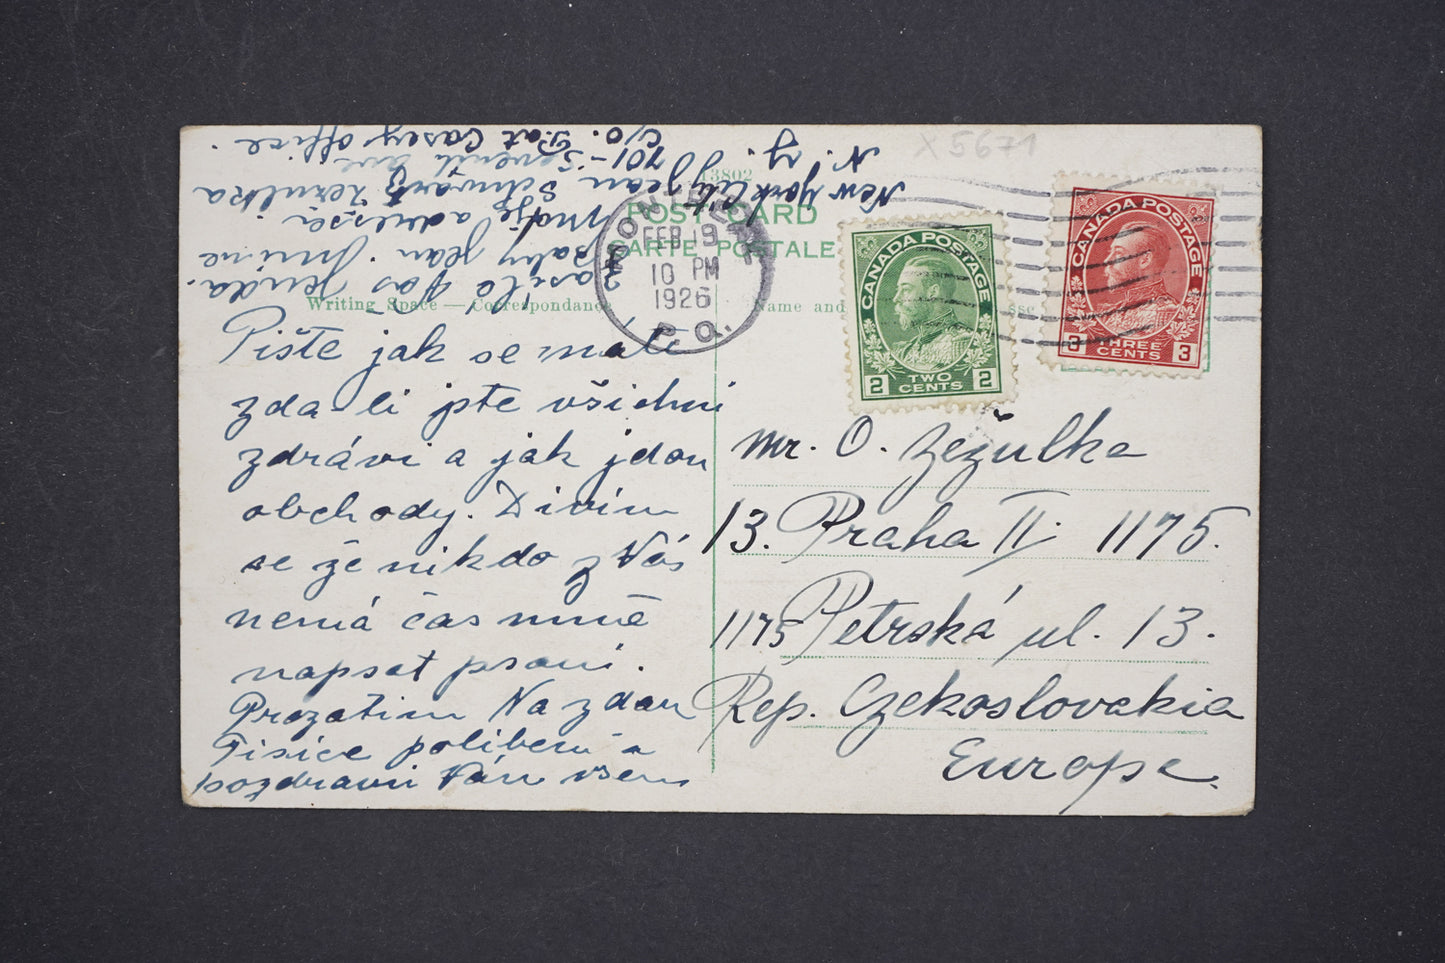 X 5671
13802
POST CARD
CARTE POSTALE
Writing Space — Correspondance
Name and
MONTREAL
FEB 19
10 PM
1926
P.Q.
CANADA POSTAGE
2 TWO CENTS 2
CANADA POSTAGE
3 THREE CENTS 3
Pište jak se máte
zda-li jste všichni
zdrávi a jak jdou
obchody. Divím
se že nikdo z Vás
nemá čas mně
napsat psaní.
Prozatim Na zdar
Tisíce políbení a
pozdravů Vám všem
zasílá Vás Jenda.
baby Jean.
Moje adresse
Jean Schwartz Zezulka
701 - Seventh Ave
c/o. Pat Casey office.
New York City
N. Y.
Mr. O. Zezulka
13. Praha II. 1175.
1175 Petrská ul. 13.
Rep. Czekoslovakia
Europe.